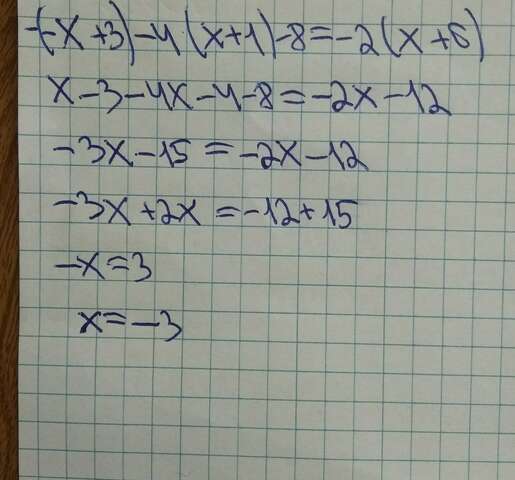 -(-x+3)-4(x+1)-8=-2(x+6)
x-3-4x-4-8=-2x-12
-3x-15=-2x-12
-3x+2x=-12+15
-x=3
x=-3